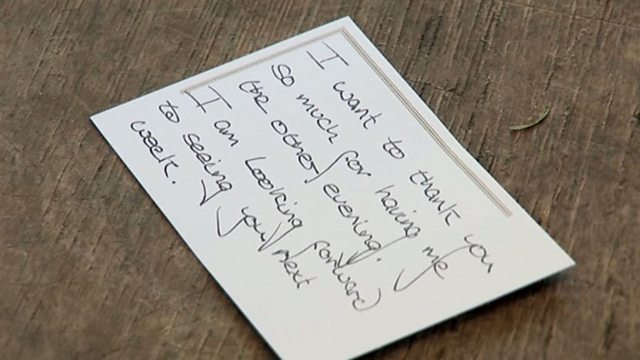 I want to thank you
so much for having me
the other evening.
I am looking forward
to seeing you next
week.